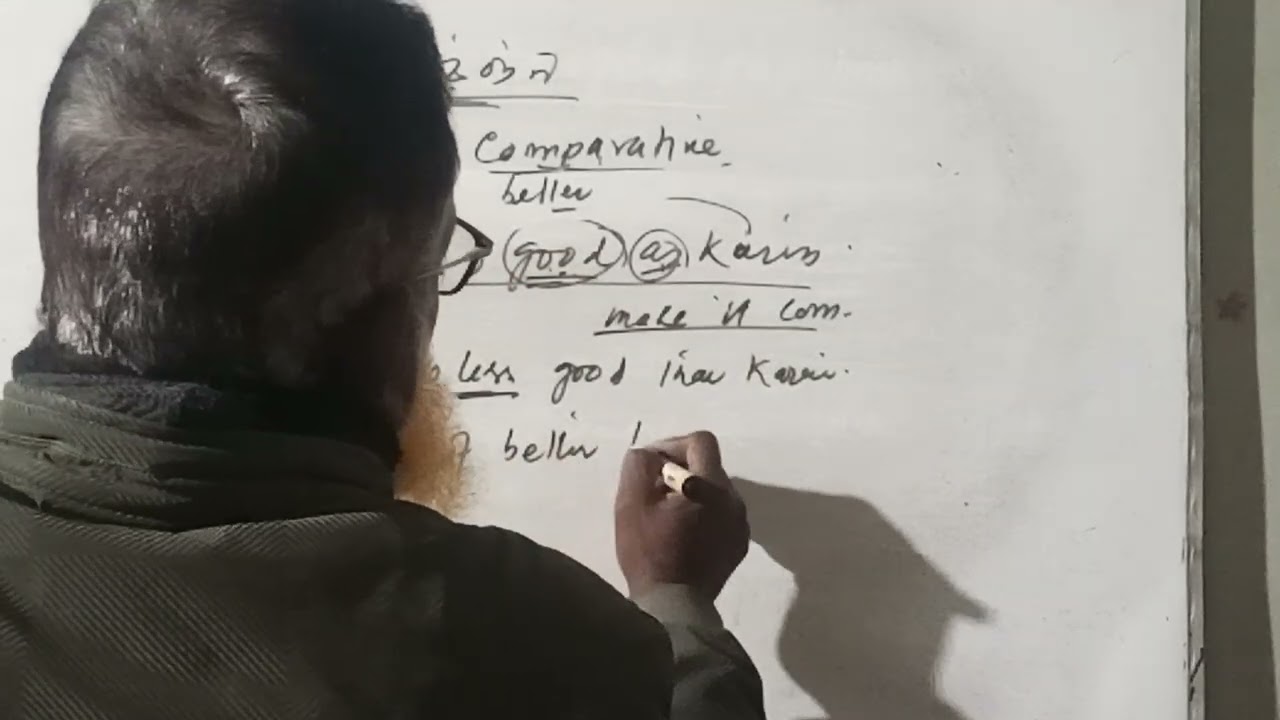 Comparative
better
good as Karim.
make it com.
less good than Karim.
better